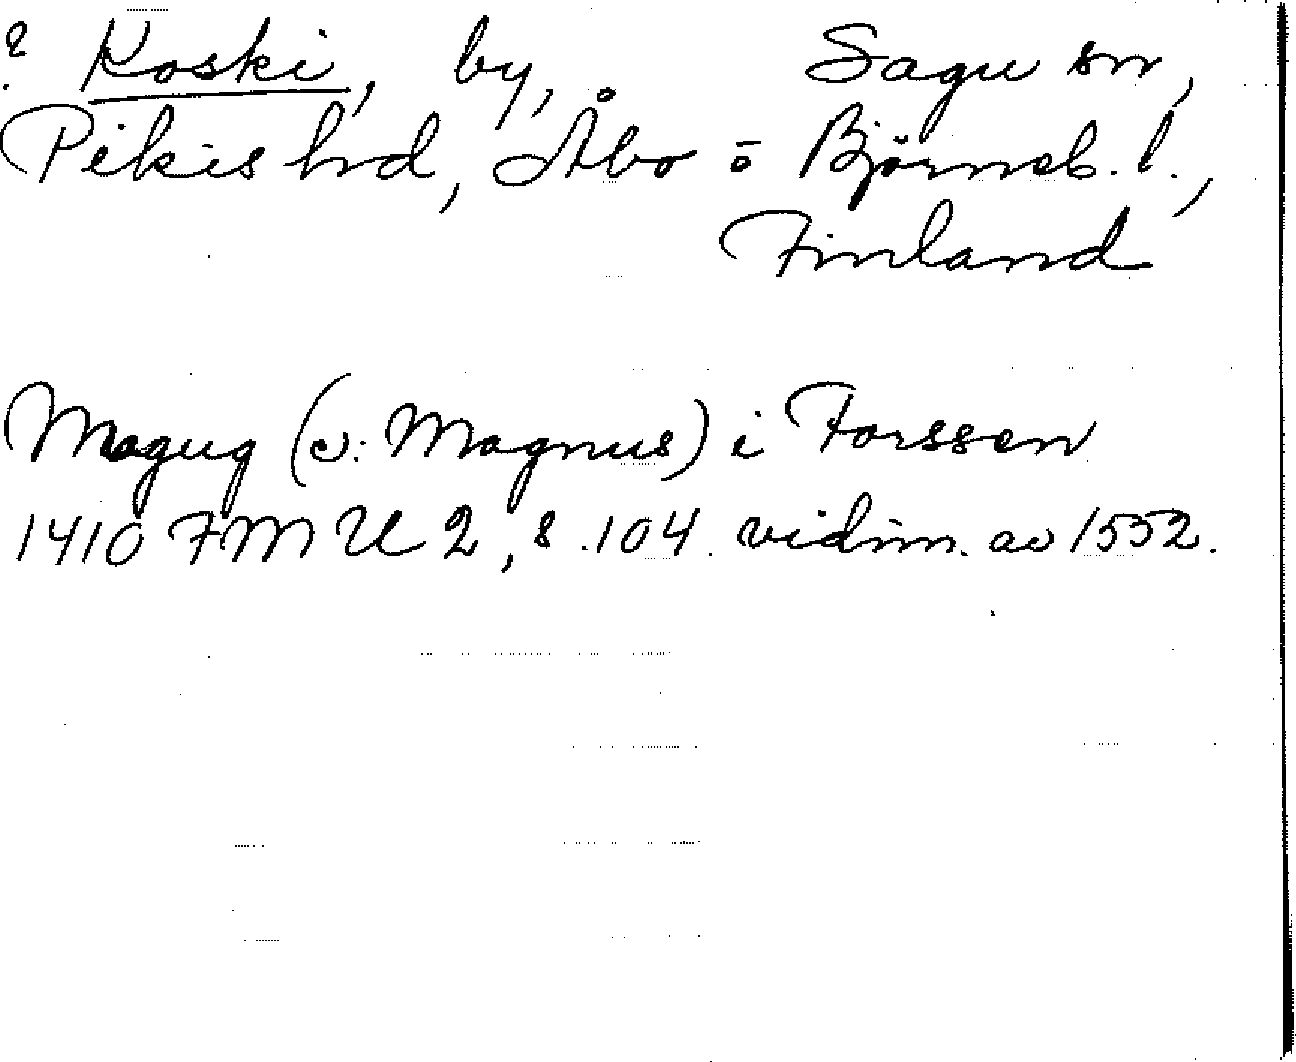 ? Koski, by, Sagu sn,
Pikis hd, Åbo o Björneb. l.,
Finland
Magug (ↄ: Magnus) i Forssen
1410 FMU 2, s. 104. vidim. av 1552.